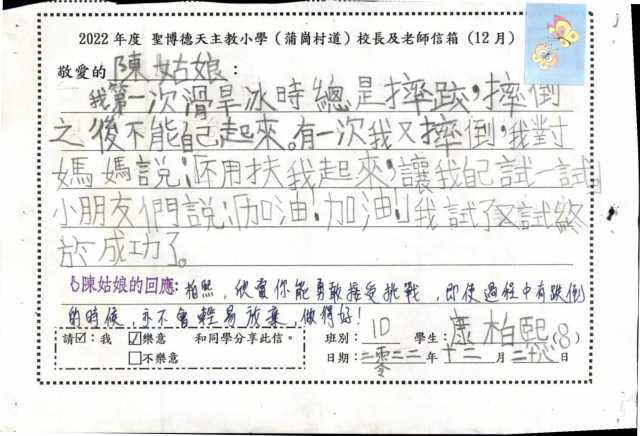 2022 年度 聖博德天主教小學（蒲崗村道）校長及老師信箱（12月）
敬愛的 陳姑娘：
我第一次滑旱冰時總是摔跤，摔倒
之後不能自己起來。有一次我又摔倒，我對
媽媽說：「不用扶我起來，讓我自己試一試」
小朋友們說：「加油！加油！」我試了又試終
於成功了。
陳姑娘的回應: 柏熙，欣賞你能勇敢接受挑戰，即使過程中有跌倒
的時候，亦不會輕易放棄，做得好！
請☑：我 ☑樂意 和同學分享此信。 班別：1D 學生：康柏熙(8)
□不樂意 日期：二零二二年十二月二十 日